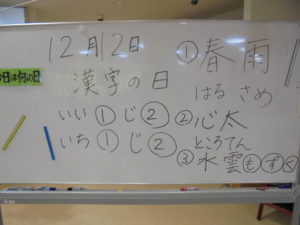 12月12日
今日は何の日
漢字の日
いい①じ②
いち①じ②
①春雨
はるさめ
②心太
ところてん
③水雲もずく